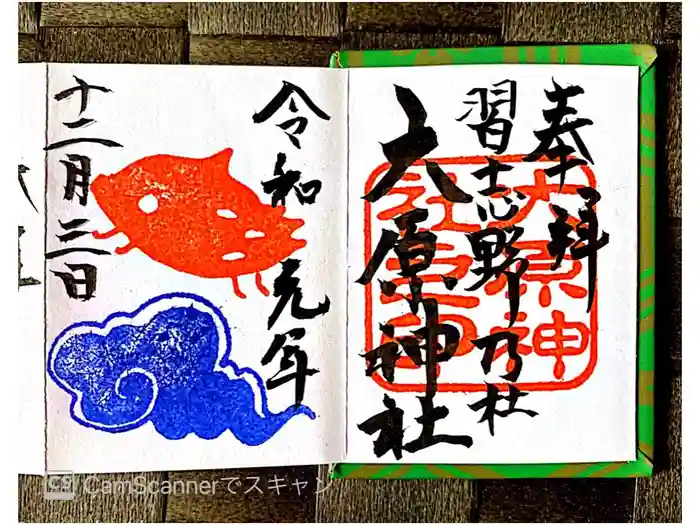 奉拝
習志野乃杜
大原神社
大原神
社之印
令和元年
十二月三日
CS CamScannerでスキャン